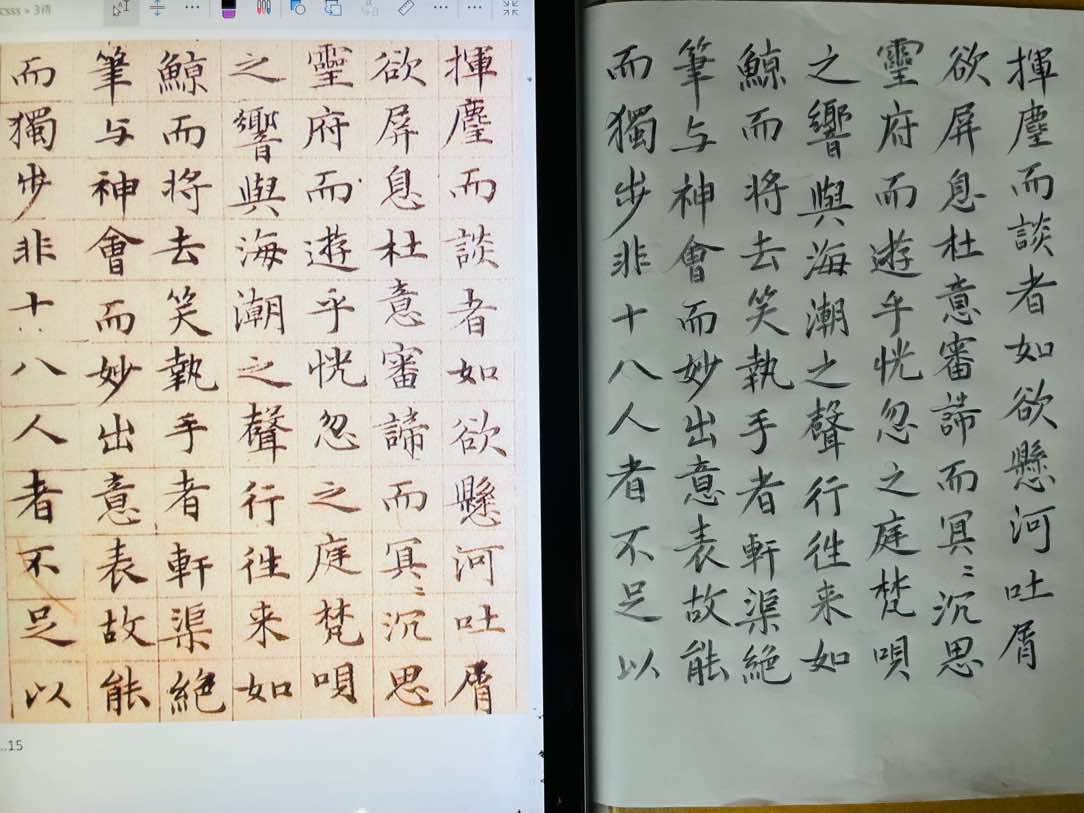 csss » 3待
揮麈而談者如欲懸河吐屑
欲屏息杜意審諦而冥〻沉思
靈府而遊乎恍忽之庭梵唄
之響與海潮之聲行徃来如
鯨而将去笑執手者軒渠絕
筆与神會而妙出意表故能
而獨步非十八人者不足以
...15
揮麈而談者如欲懸河吐屑
欲屏息杜意審諦而冥〻沉思
靈府而遊乎恍忽之庭梵唄
之響與海潮之聲行徃来如
鯨而将去笑執手者軒渠絕
筆与神會而妙出意表故能
而獨步非十八人者不足以